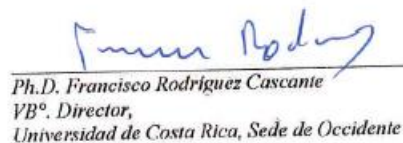 Ph.D. Francisco Rodríguez Cascante
VBº. Director,
Universidad de Costa Rica, Sede de Occidente